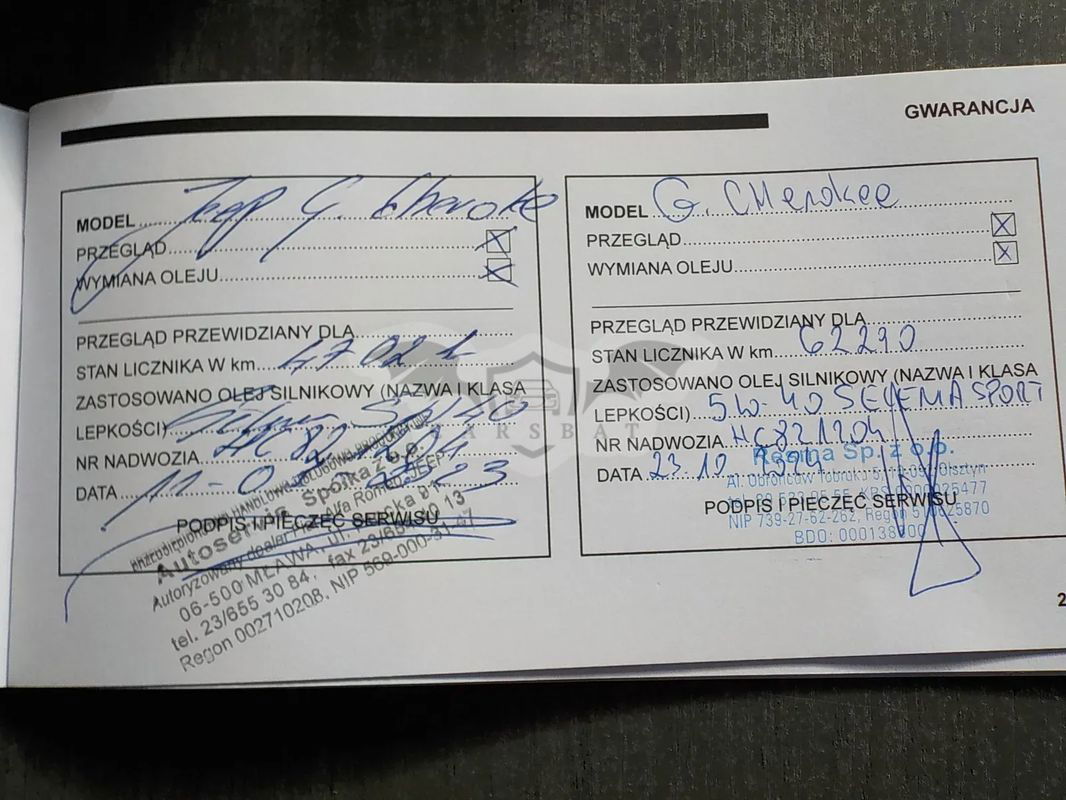 GWARANCJA
MODEL Jeep G. Cherokee
PRZEGLĄD X
WYMIANA OLEJU X
PRZEGLĄD PRZEWIDZIANY DLA
STAN LICZNIKA W km 47021
ZASTOSOWANO OLEJ SILNIKOWY (NAZWA I KLASA
LEPKOŚCI) 5W30
NR NADWOZIA HC82
DATA 11-0 23
PODPIS I PIECZĘĆ SERWISU
PRZEDSIĘBIORSTWO HANDLOWO USŁUGOWO
Autoserwis Spółka z o.o.
Autoryzowany dealer Fiat, Alfa Romeo, JEEP
06-500 MŁAWA, ul.
tel. 23/655 30 84, fax 23/655 13
Regon 002710208, NIP 569-000-31-47
MODEL G. CHerokee
PRZEGLĄD X
WYMIANA OLEJU X
PRZEGLĄD PRZEWIDZIANY DLA
STAN LICZNIKA W km 62290
ZASTOSOWANO OLEJ SILNIKOWY (NAZWA I KLASA
LEPKOŚCI) 5W-40 SELENIA SPORT
NR NADWOZIA HC821204
DATA 23.10.
PODPIS I PIECZĘĆ SERWISU
Sp. z o.o.
Al. Obrońców Tobruku Olsztyn
NIP 739-27-62-262, Regon
BDO: 000138
CARSBAT
2